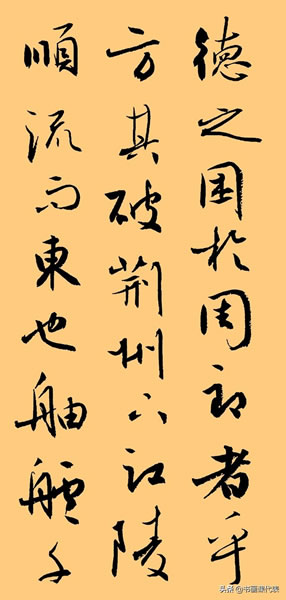 德之困於周郎者乎
方其破荆州下江陵
順流而東也舳艫千
头条@书画课代表